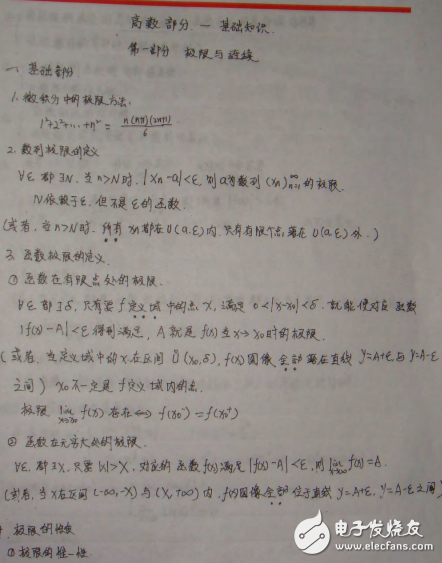 高数部分 — 基础知识.
第一部分 极限与连续
一 基础部分
1. 微积分中的极限方法:
1²+2²+…+n² = n(n+1)(2n+1)/6
2. 数列极限的定义
∀ε 都∃N. 当n>N时. |Xn-a|<ε, 则a为数列(xn)n=1^∞的极限.
N依赖于ε, 但不是ε的函数.
(或者, 当n>N时. 所有xn都在U(a.ε)内. 只有有限个落在U(a.ε)外.)
3. 函数极限的定义.
① 函数在有限点处的极限.
∀ε 都∃δ, 只要f定义域中的点x, 满足 0<|x-x₀|<δ. 就能使对应函数
|f(x)-A|<ε得到满足, A就是f(x)当x→x₀时的极限.
(或者, 当定义域中的x在区间Ů(x₀,δ), f(x)图像全部落在直线 y=A+ε与y=A-ε
之间) x₀不一定是f定义域内的点.
极限 lim x→x₀ f(x) 存在⟺ f(x₀⁻)=f(x₀⁺)
② 函数在无穷大处的极限.
∀ε. 都∃X, 只要|x|>X, 对应的函数f(x)满足|f(x)-A|<ε, 则lim x→∞ f(x)=A.
(或者, 当x在区间(-∞,-X)与(X,+∞)内, f(x)图像全部位于直线y=A+ε, y=A-ε之间)
极限的性质
① 极限的唯一性.
电子发烧友
www.elecfans.com